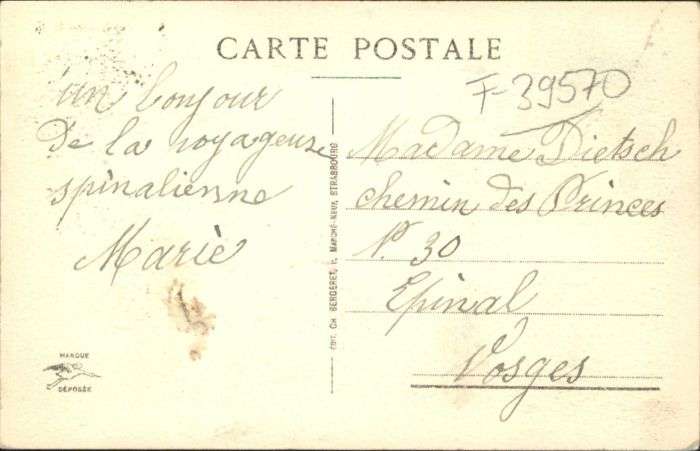 CARTE POSTALE
F-39570
un bonjour
de la voyageuse
spinalienne
Marie
Madame Dietsch
chemin des Princes
No. 30
Epinal
Vosges
EDIT. CH. BERGERET, MARCHÉ-NEUF, STRASBOURG
MARQUE
DÉPOSÉE